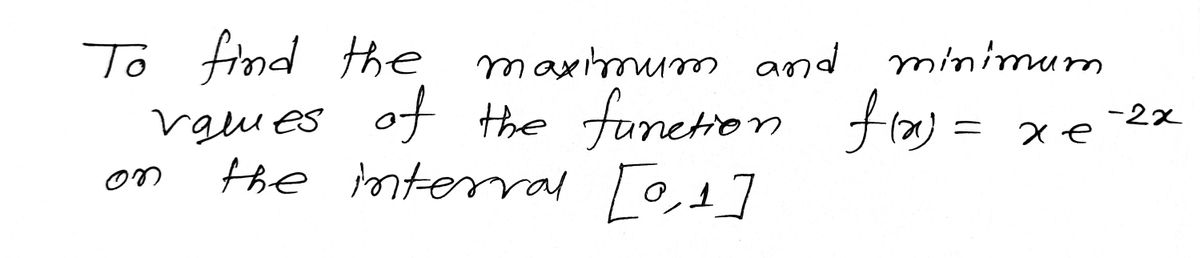 To find the maximum and minimum
values of the function f(x) = xe^{-2x}
on the interval [0,1]